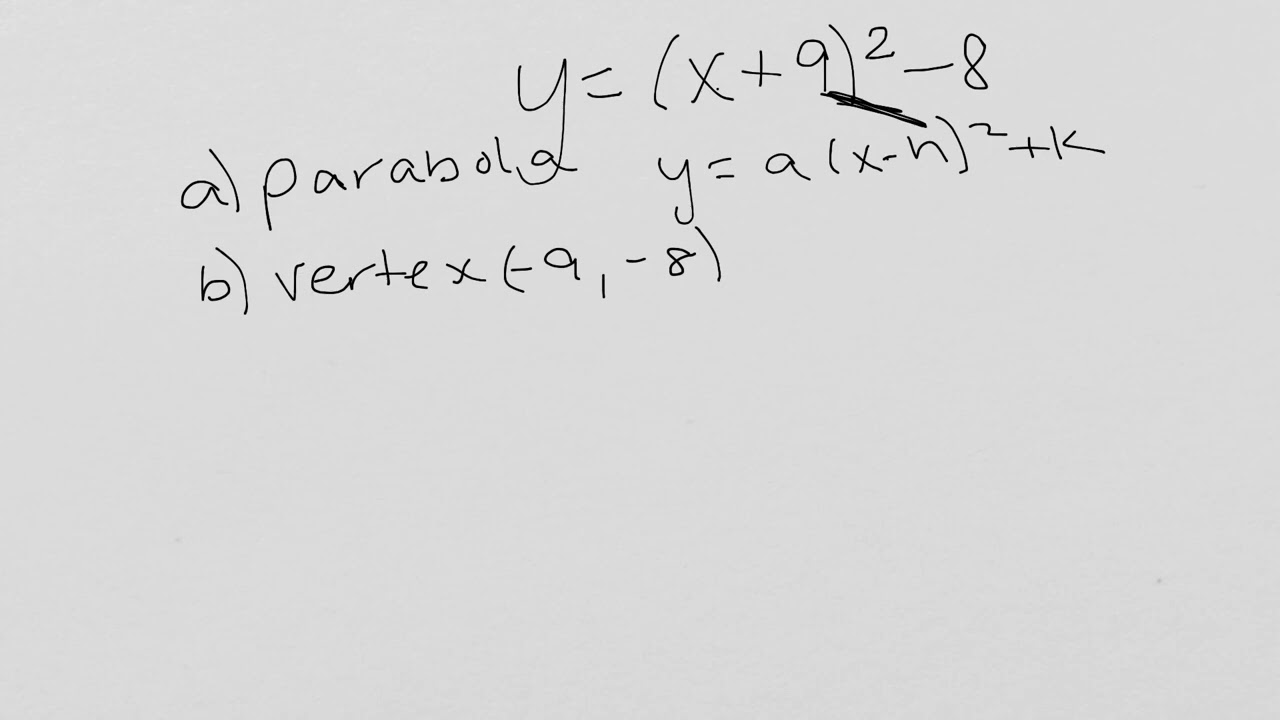 y = (x + 9)² - 8
a) parabola y = a (x - h)² + k
b) vertex (-9, -8)